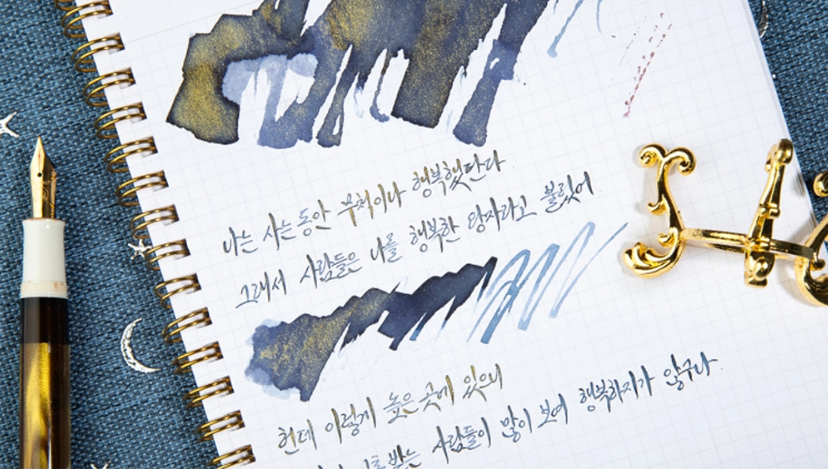 나는 사는동안 무척이나 행복했단다
그래서 사람들은 나를 행복한 왕자라고 불렀어
헌데 이렇게 높은 곳에 있으니
고통받는 사람들이 많이 보여 행복하지가 않구나.